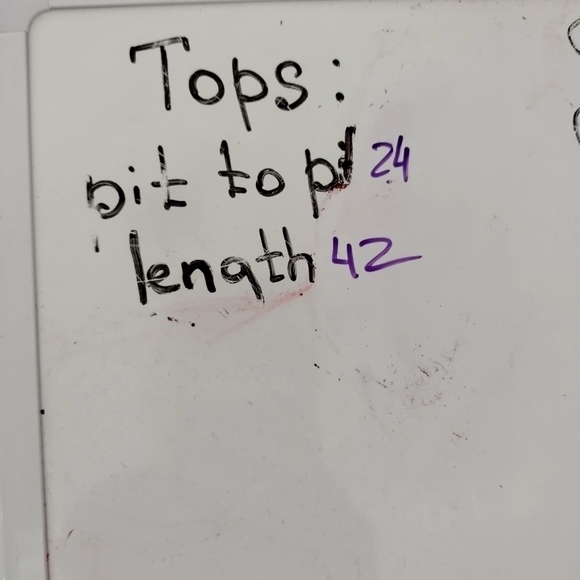 Tops:
pit to pit 24
length 42